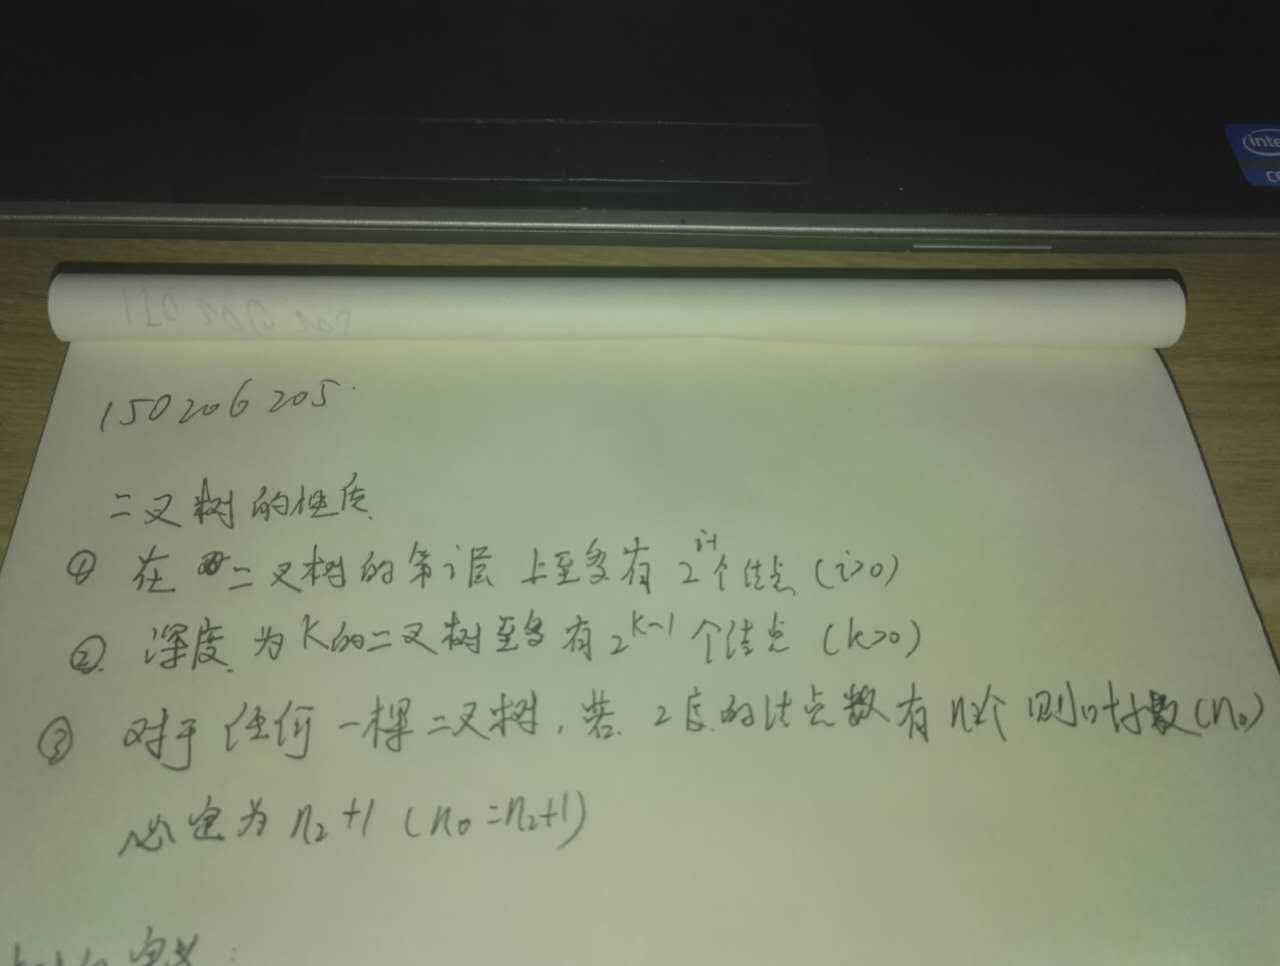 inte
150206205.
二叉树的性质
① 在二叉树的第i层上至多有2^{i-1}个结点(i>0)
② 深度为K的二叉树至多有2^{k-1}个结点(k>0)
③ 对于任何一棵二叉树,若2度的结点数有n2个则叶子数(n₀)
必定为n₂+1(n₀=n₂+1)
定义: